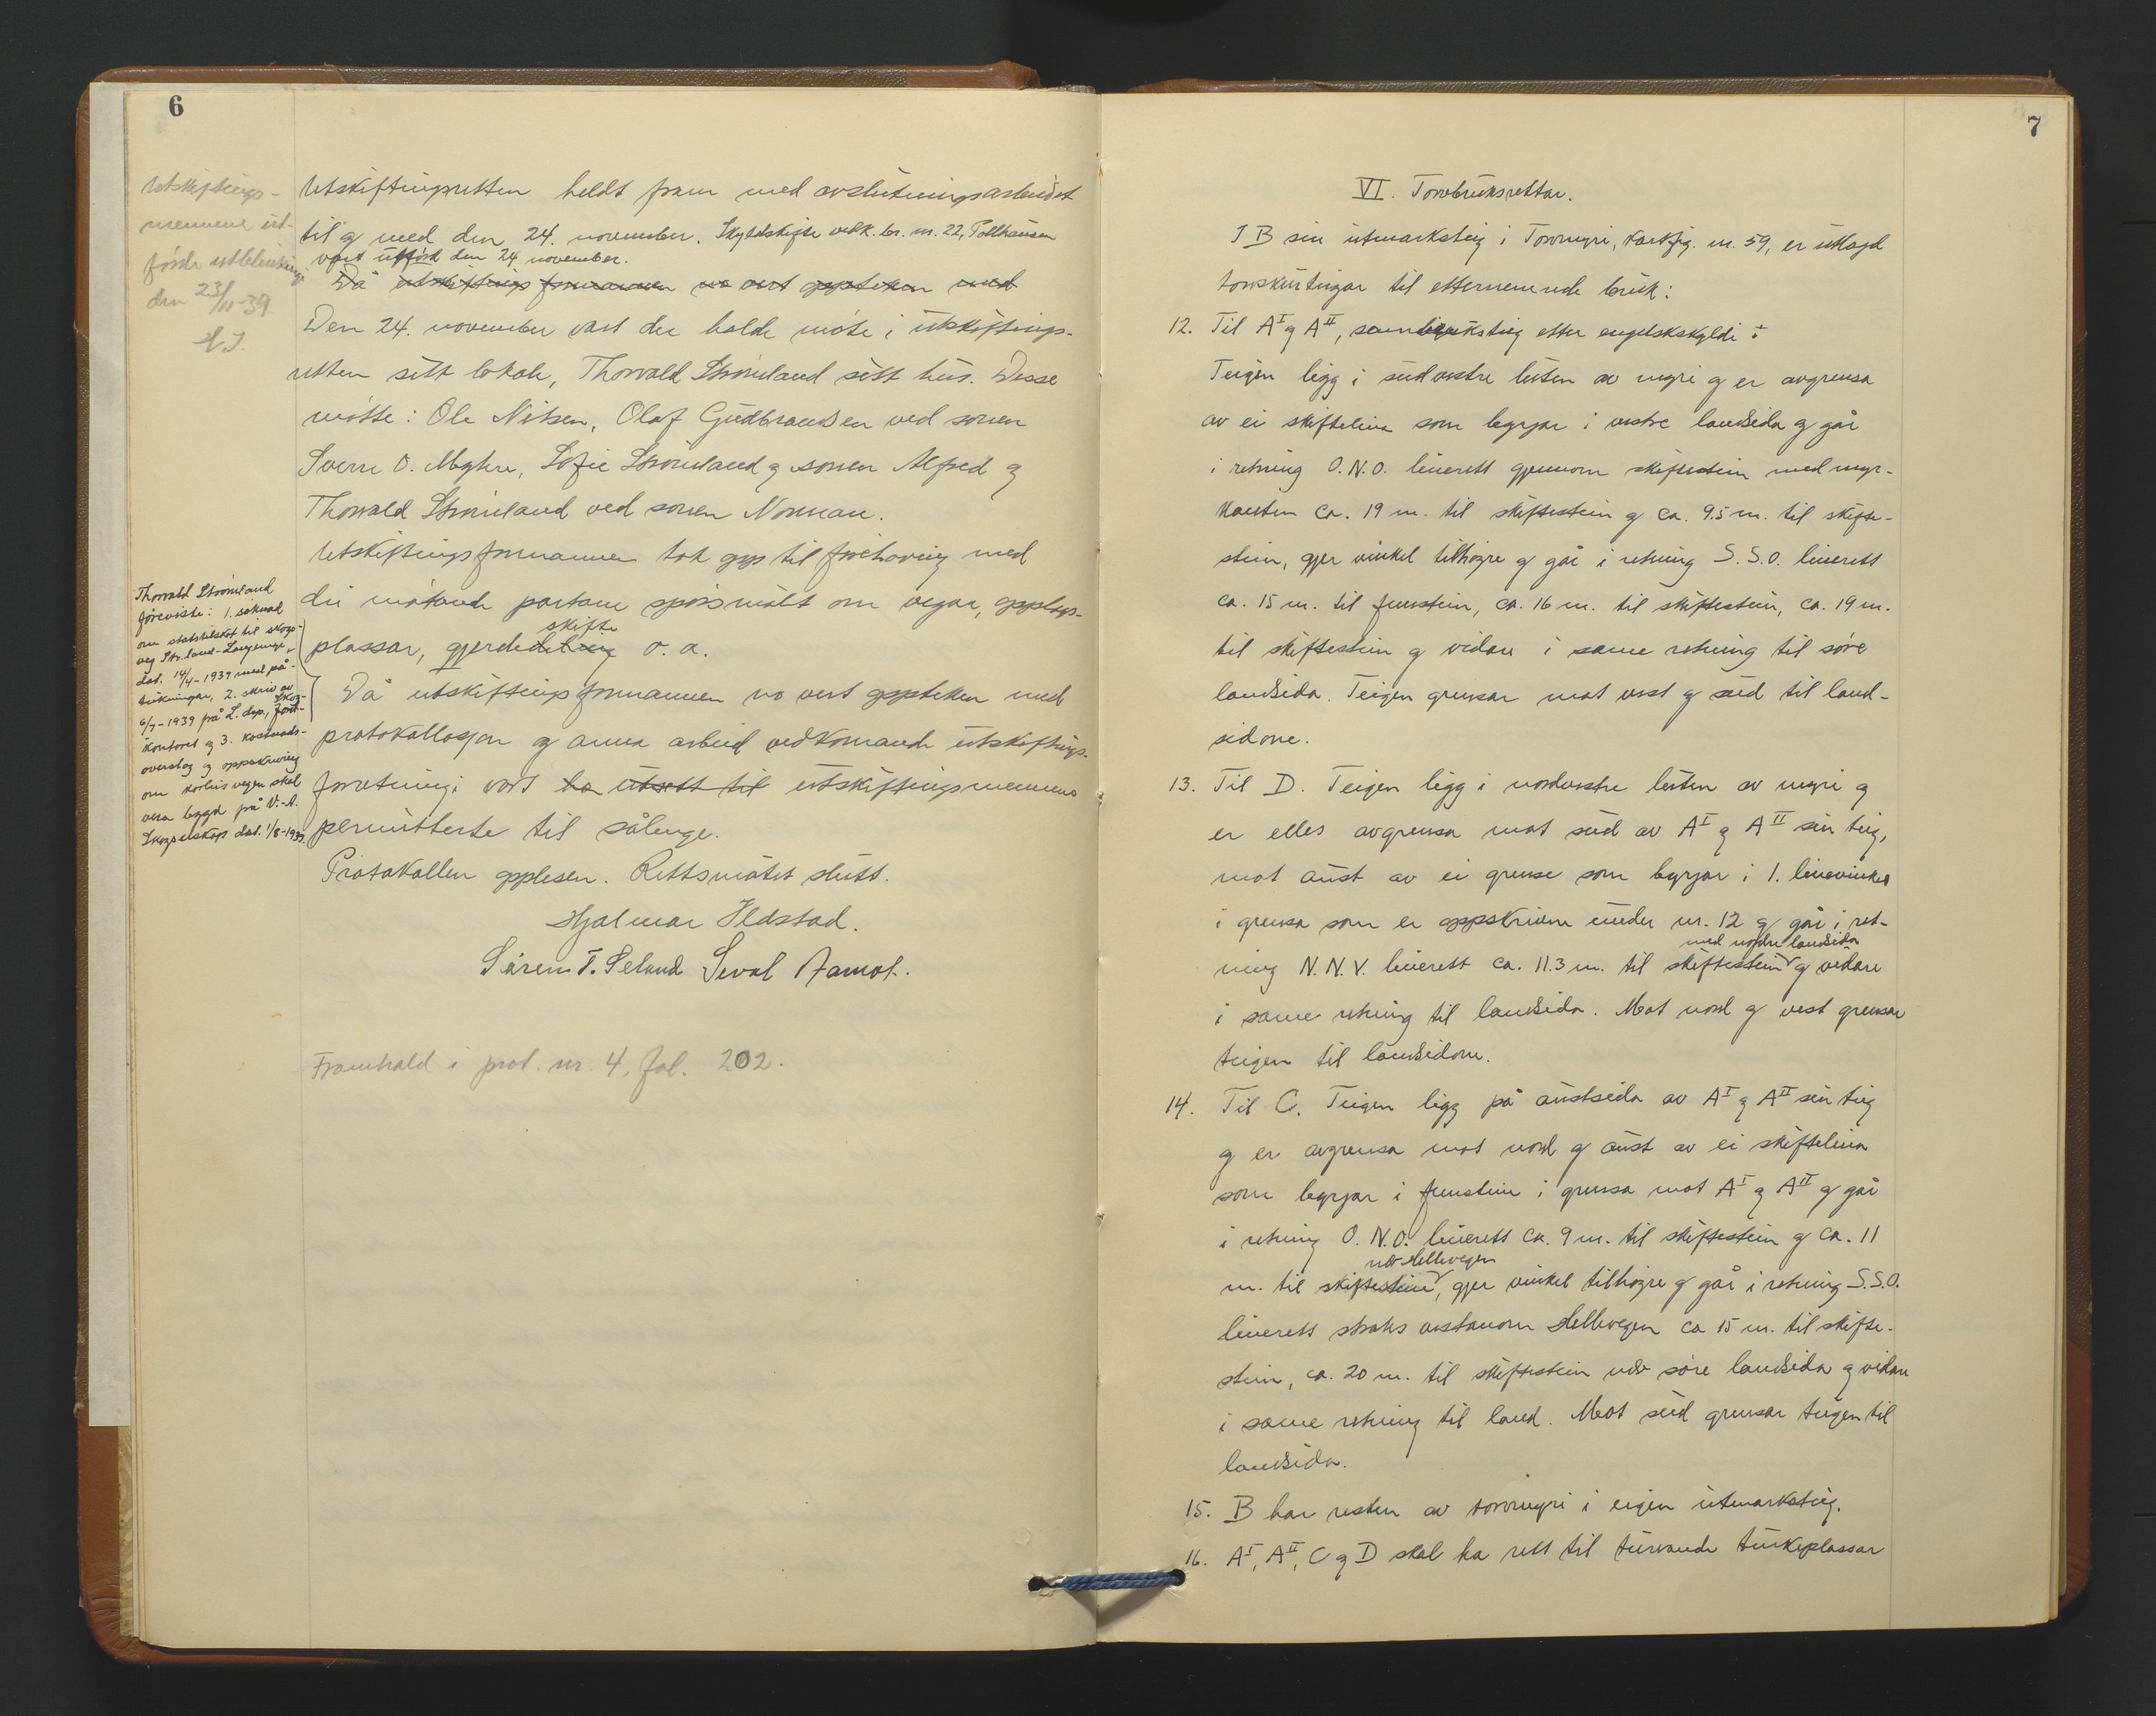 6
Utskiftings-
mennene ut-
førde utbleikingi
den 23/11-39.
H.I.
Utskiftingsretten heldt fram med avslutningsarbeidet
til og med den 24. november. Skyldskifte vedk. br. nr. 22, Pollhausen
vart utførd den 24 november.
Då utskiftings formannen no vert uppteken med
Den 24. november vart der halde møte i utskiftings-
retten sitt lokale, Thorvald Strømland sitt hus. Desse
møtte: Ole Nilsen, Olaf Gudbrandsen ved sonen
Sverre O. Myhre, Sofie Strømland og sonen Alfred og
Thorvald Strømland ved sonen Norman.
Utskiftingsformannen tok upp til førehaving med
dei møtande partane spørsmålet om vegar, upplags-
skifte
plassar, gjerdedeling o. a.
Då utskiftingsformannen no vert uppteken med
protokollasjon og anna arbeid vedkomande utskiftings-
forretningi vart ha utsett til utskiftingsmennene
permitterte til sålenge.
Protokollen upplesen. Rettsmøtet slutt.
Hjalmar Ildstad.
Søren T. Seland Seval Aamot.
Thorvald Strømland
føreviste: 1. søknad
om statstilskot til skogs-
veg Str.land-Langenge,
dat. 14/4-1939 med på-
teikningar, 2. skriv av
6/7-1939 frå L. dep., Skog-
kontoret og 3. kostnads-
overslag og oppskriving
om korleis vegen skal
vera bygd frå V.-A.
Skogselskap dat. 1/8-1939.
Framhald i prot. nr. 4, fol. 202.
7
VI. Torvbruksrettar.
I B sin utmarksteig i Torvmyri, kartfig. nr. 59, er utlagd
torvskurtingar til etternemnde bruk:
12. Til AI og AII, sambruksteig etter engelskskyldi ÷
Teigen ligg i sudvestre luten av myri og er avgrensa
av ei skifteline som byrjar i vestre landsida og går
i retning O.N.O. linerett gjennom skiftestein med myr-
kanten ca. 19 m. til skiftestein og ca. 9.5 m. til skifte-
stein, gjer vinkel tilhøgre og går i retning S.S.O. linerett
ca. 15 m. til funstein, ca. 16 m. til skiftestein, ca. 19 m.
til skiftestein og vidare i same retning til søre
landsida. Teigen grensar mot vest og sud til land-
sidone.
13. Til D. Teigen ligg i nordvestre luten av myri og
er elles avgrensa mot sud av AI og AII sin teig,
mot aust av ei grense som byrjar i 1. linevinkel
i grensa som er uppskrivne under nr. 12 og går i ret-
med nordre landsida
ning N.N.V. linerett ca. 11.3 m. til skiftestein og vidare
i same retning til landsida. Mot nord og vest grensar
teigen til landsidone.
14. Til C. Teigen ligg på austsida av AI og AII sin teig
og er avgrensa mot nord og aust av ei skifteline
som byrjar i funstein i grensa mot AI og AII og går
i retning O.N.O. linerett ca. 9 m. til skiftestein og ca. 11
ved Hellevegen
m. til skiftestein, gjer vinkel tilhøgre og går i retning S.S.O.
linerett straks vestanom Hellevegen ca 15 m. til skifte-
stein, ca. 20 m. til skiftestein ved søre landsida og vidare
i same retning til land. Mot sud grensar teigen til
landsida.
15. B har resten av torvmyri i eigen utmarksteig.
16. AI, AII, C og D skal ha rett til turvande turkeplassar